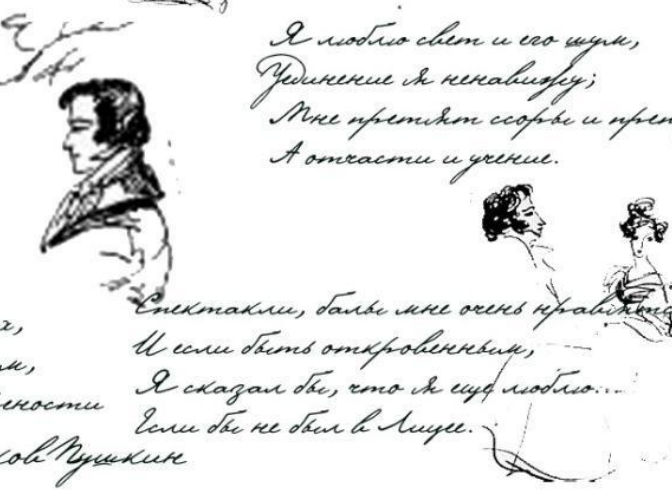 Я люблю свет и его шум,
Уединение я ненавижу;
Мне претят ссоры и
А отчасти и учение.
Спектакли, балы мне очень
И если быть откровенным,
Я сказал бы, что я еще люблю...
Если бы не был в Лицее.
Пушкин